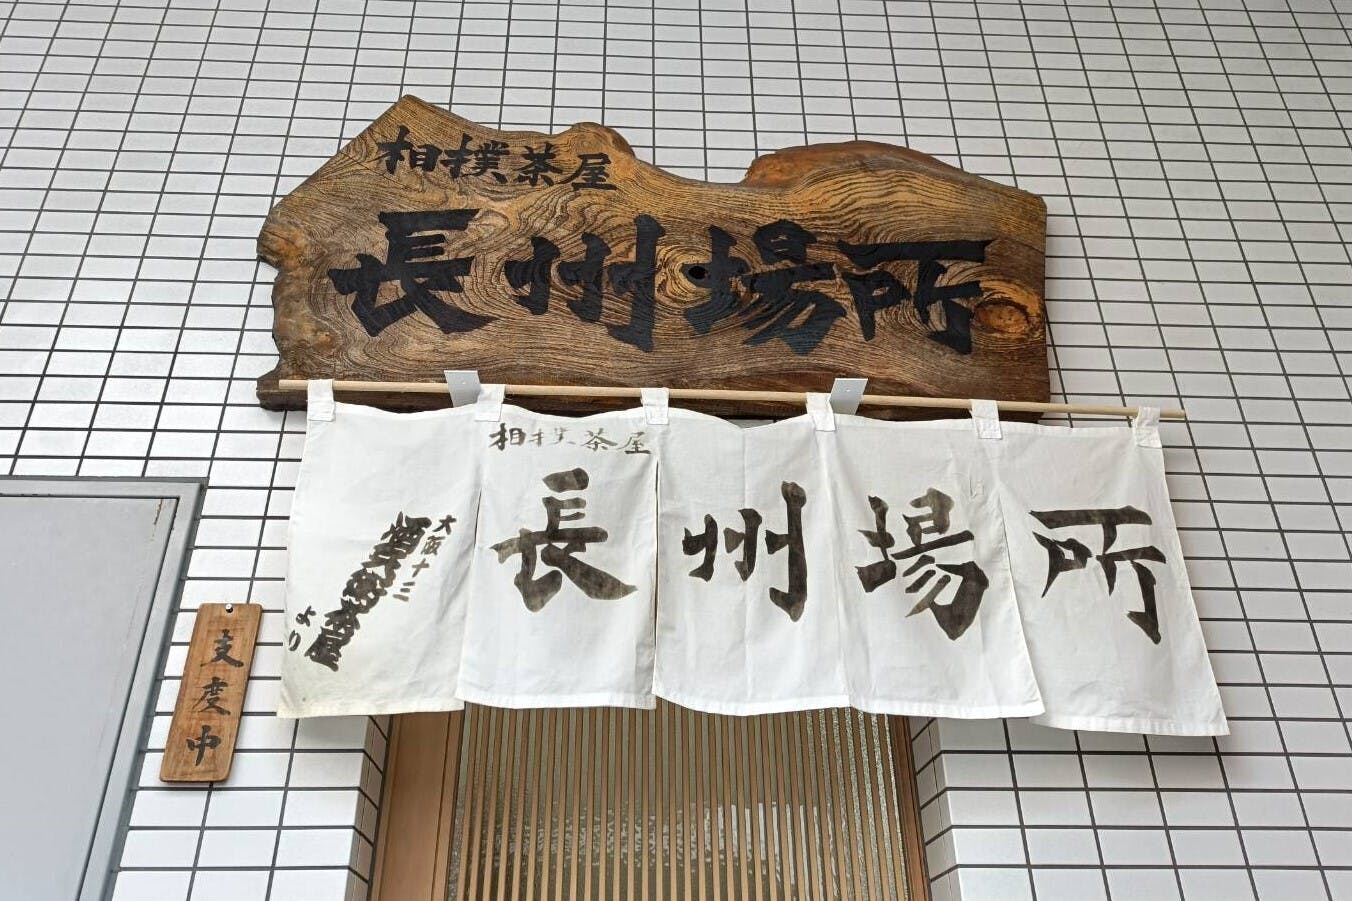 相撲茶屋
長州場所
相撲茶屋
長州場所
大阪十三
茶屋
より
支度中